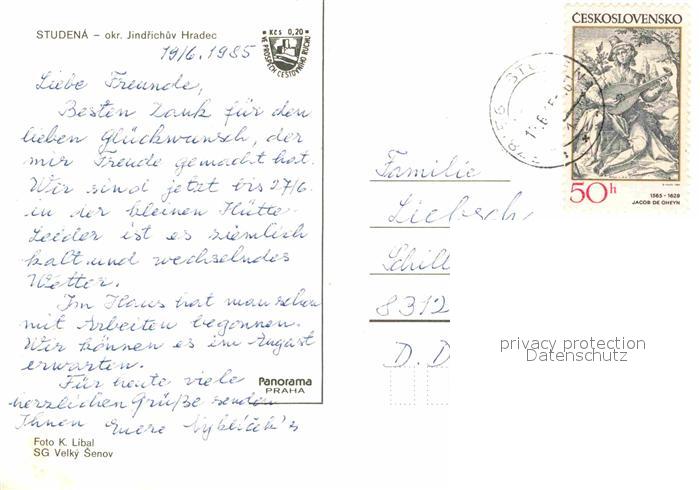 STUDENÁ – okr. Jindřichův Hradec
Kčs 0,20
VE PROSPĚCH CESTOVNÍHO RUCHU
19/6. 1985
Liebe Freunde,
Besten Dank für den
lieben Glückwunsch, der
mir Freude gemacht hat.
Wir sind jetzt bis 27/6.
in der kleinen Hütte.
Leider ist es ziemlich
kalt und wechselndes
Wetter.
Im Haus hat man schon
mit Arbeiten begonnen.
Wir können es im August
erwarten.
Für heute viele
herzlichen Grüße senden
Ihnen Euere Vyblíček's
Panorama
PRAHA
Foto K. Líbal
SG Velký Šenov
ČESKOSLOVENSKO
50h
1565 - 1629
JACOB DE GHEYN
Familie
Liebsch
Schill
8312
D. D
privacy protection
Datenschutz